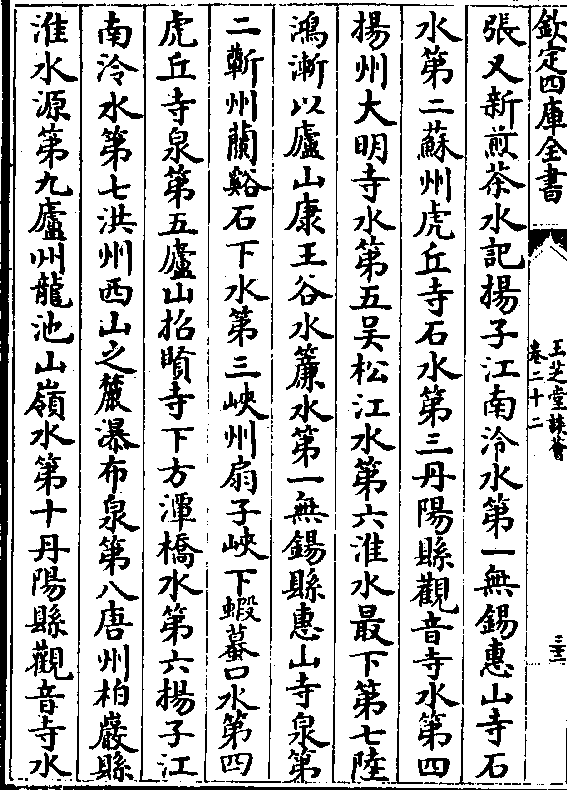 欽定四庫全書
玉芝堂談薈
卷二十二
三三
張又新煎茶水記揚子江南泠水第一無錫惠山寺石
水第二蘇州虎丘寺石水第三丹陽縣觀音寺水第四
揚州大明寺水第五吴松江水第六淮水最下第七陸
鴻漸以廬山康王谷水簾水第一無錫縣惠山寺泉第
二蘄州蘭谿石下水第三峽州扇子峽下蝦蟇口水第四
虎丘寺泉第五廬山招賢寺下方潭橋水第六揚子江
南泠水第七洪州西山之麓瀑布泉第八唐州柏巖縣
淮水源第九廬州龍池山嶺水第十丹陽縣觀音寺水